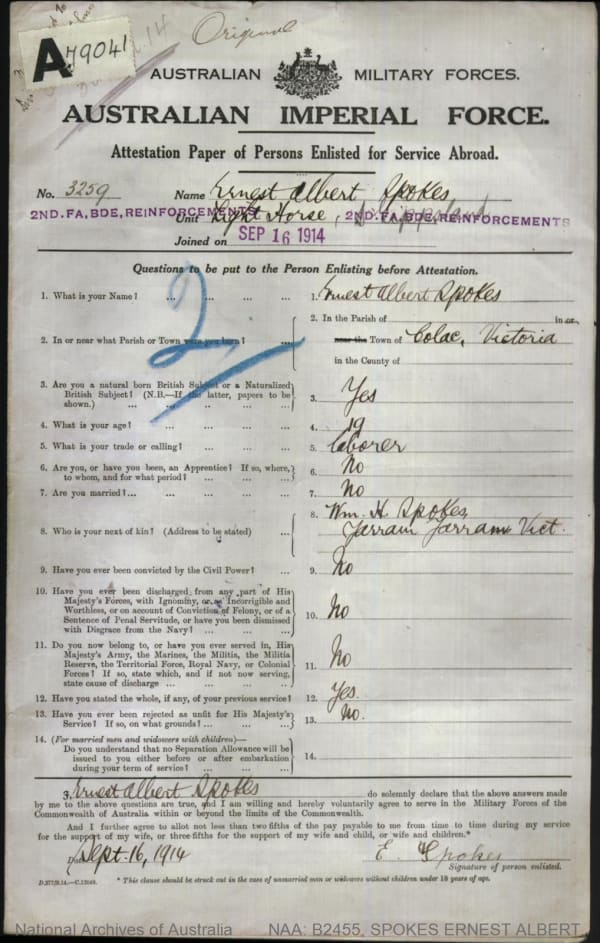 Original
A 79041
AUSTRALIAN MILITARY FORCES.
AUSTRALIAN IMPERIAL FORCE.
Attestation Paper of Persons Enlisted for Service Abroad.
No. 3259 Name Ernest Albert Spokes
2ND. FA, BDE, REINFORCEMENTS Unit Light Horse, 2ND. FA, BDE, REINFORCEMENTS
Joined on SEP 16 1914
Questions to be put to the Person Enlisting before Attestation.
1. What is your Name? ... ... ... ... 1. Ernest Albert Spokes
2. In the Parish of in or
2. In or near what Parish or Town were you born? ... near the Town of Colac, Victoria
in the County of
3. Are you a natural born British Subject or a Naturalized
British Subject? (N.B.—If the latter, papers to be
shown.) ... ... ... ... ... 3. Yes
4. What is your age? ... ... ... ... 4. 19
5. What is your trade or calling? ... ... ... 5. Laborer
6. Are you, or have you been, an Apprentice? If so, where,
to whom, and for what period? ... ... ... 6. No
7. Are you married? ... ... ... ... ... 7. No
8. Wm. H. Spokes
8. Who is your next of kin? (Address to be stated) ... Yarram Yarram Vict.
9. Have you ever been convicted by the Civil Power? ... 9. No
10. Have you ever been discharged from any part of His
Majesty's Forces, with Ignominy, or as Incorrigible and
Worthless, or on account of Conviction of Felony, or of a
Sentence of Penal Servitude, or have you been dismissed
with Disgrace from the Navy? ... ... ... 10. No
11. Do you now belong to, or have you ever served in, His
Majesty's Army, the Marines, the Militia, the Militia
Reserve, the Territorial Force, Royal Navy, or Colonial
Forces? If so, state which, and if not now serving,
state cause of discharge ... ... ... ... 11. No
12. Have you stated the whole, if any, of your previous service? 12. Yes.
13. Have you ever been rejected as unfit for His Majesty's
Service? If so, on what grounds? ... ... ... 13. No.
14. (For married men and widowers with children)—
Do you understand that no Separation Allowance will be
issued to you either before or after embarkation
during your term of service? ... ... ... 14.
I, Ernest Albert Spokes do solemnly declare that the above answers made
by me to the above questions are true, and I am willing and hereby voluntarily agree to serve in the Military Forces of the
Commonwealth of Australia within or beyond the limits of the Commonwealth.
And I further agree to allot not less than two fifths of the pay payable to me from time to time during my service
for the support of my wife, or three-fifths for the support of my wife and child, or wife and children.*
Date Sept. 16, 1914 E. Spokes
Signature of person enlisted.
* This clause should be struck out in the case of unmarried men or widowers without children under 18 years of age.
National Archives of Australia NAA: B2455, SPOKES ERNEST ALBERT